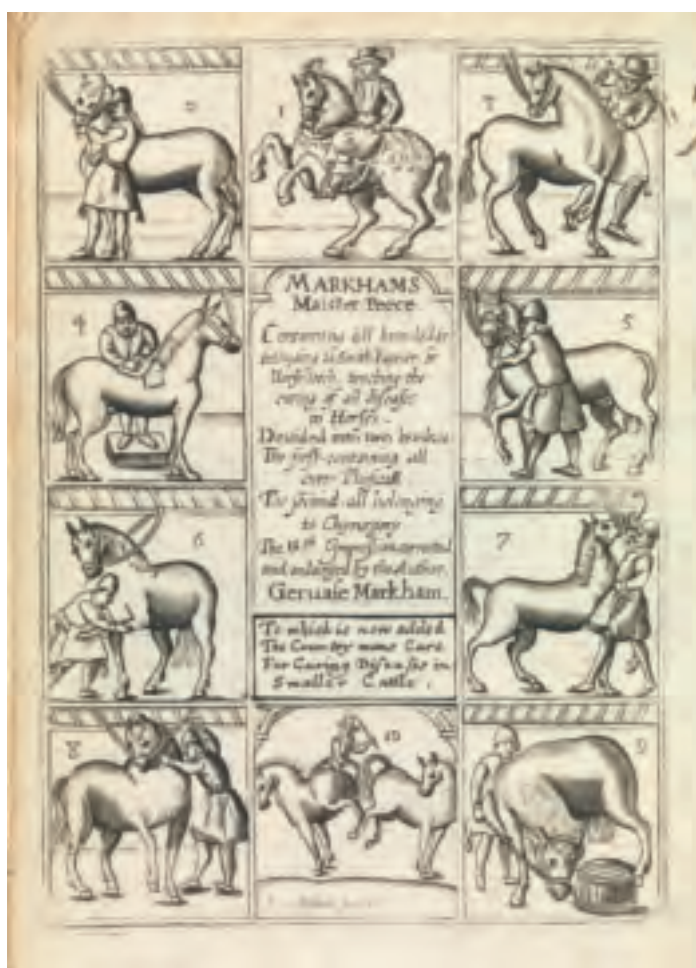 2
1
3
4
5
6
7
8
10
9
MARKHAMS
Maister Peece
Contayning all knowledge
belonging to Smith Farrier or
Horsleech, touching the
curing of all diseases
in Horses.
Devided into two bookes:
The first containing all
cures Phisicall
The second all belonging
to Chyrurgery
The Impression corrected
and enlarged by the Author.
Gervase Markham.
To which is now added
The Country mans Care
For Curing Diseases in
Smaller Cattle.